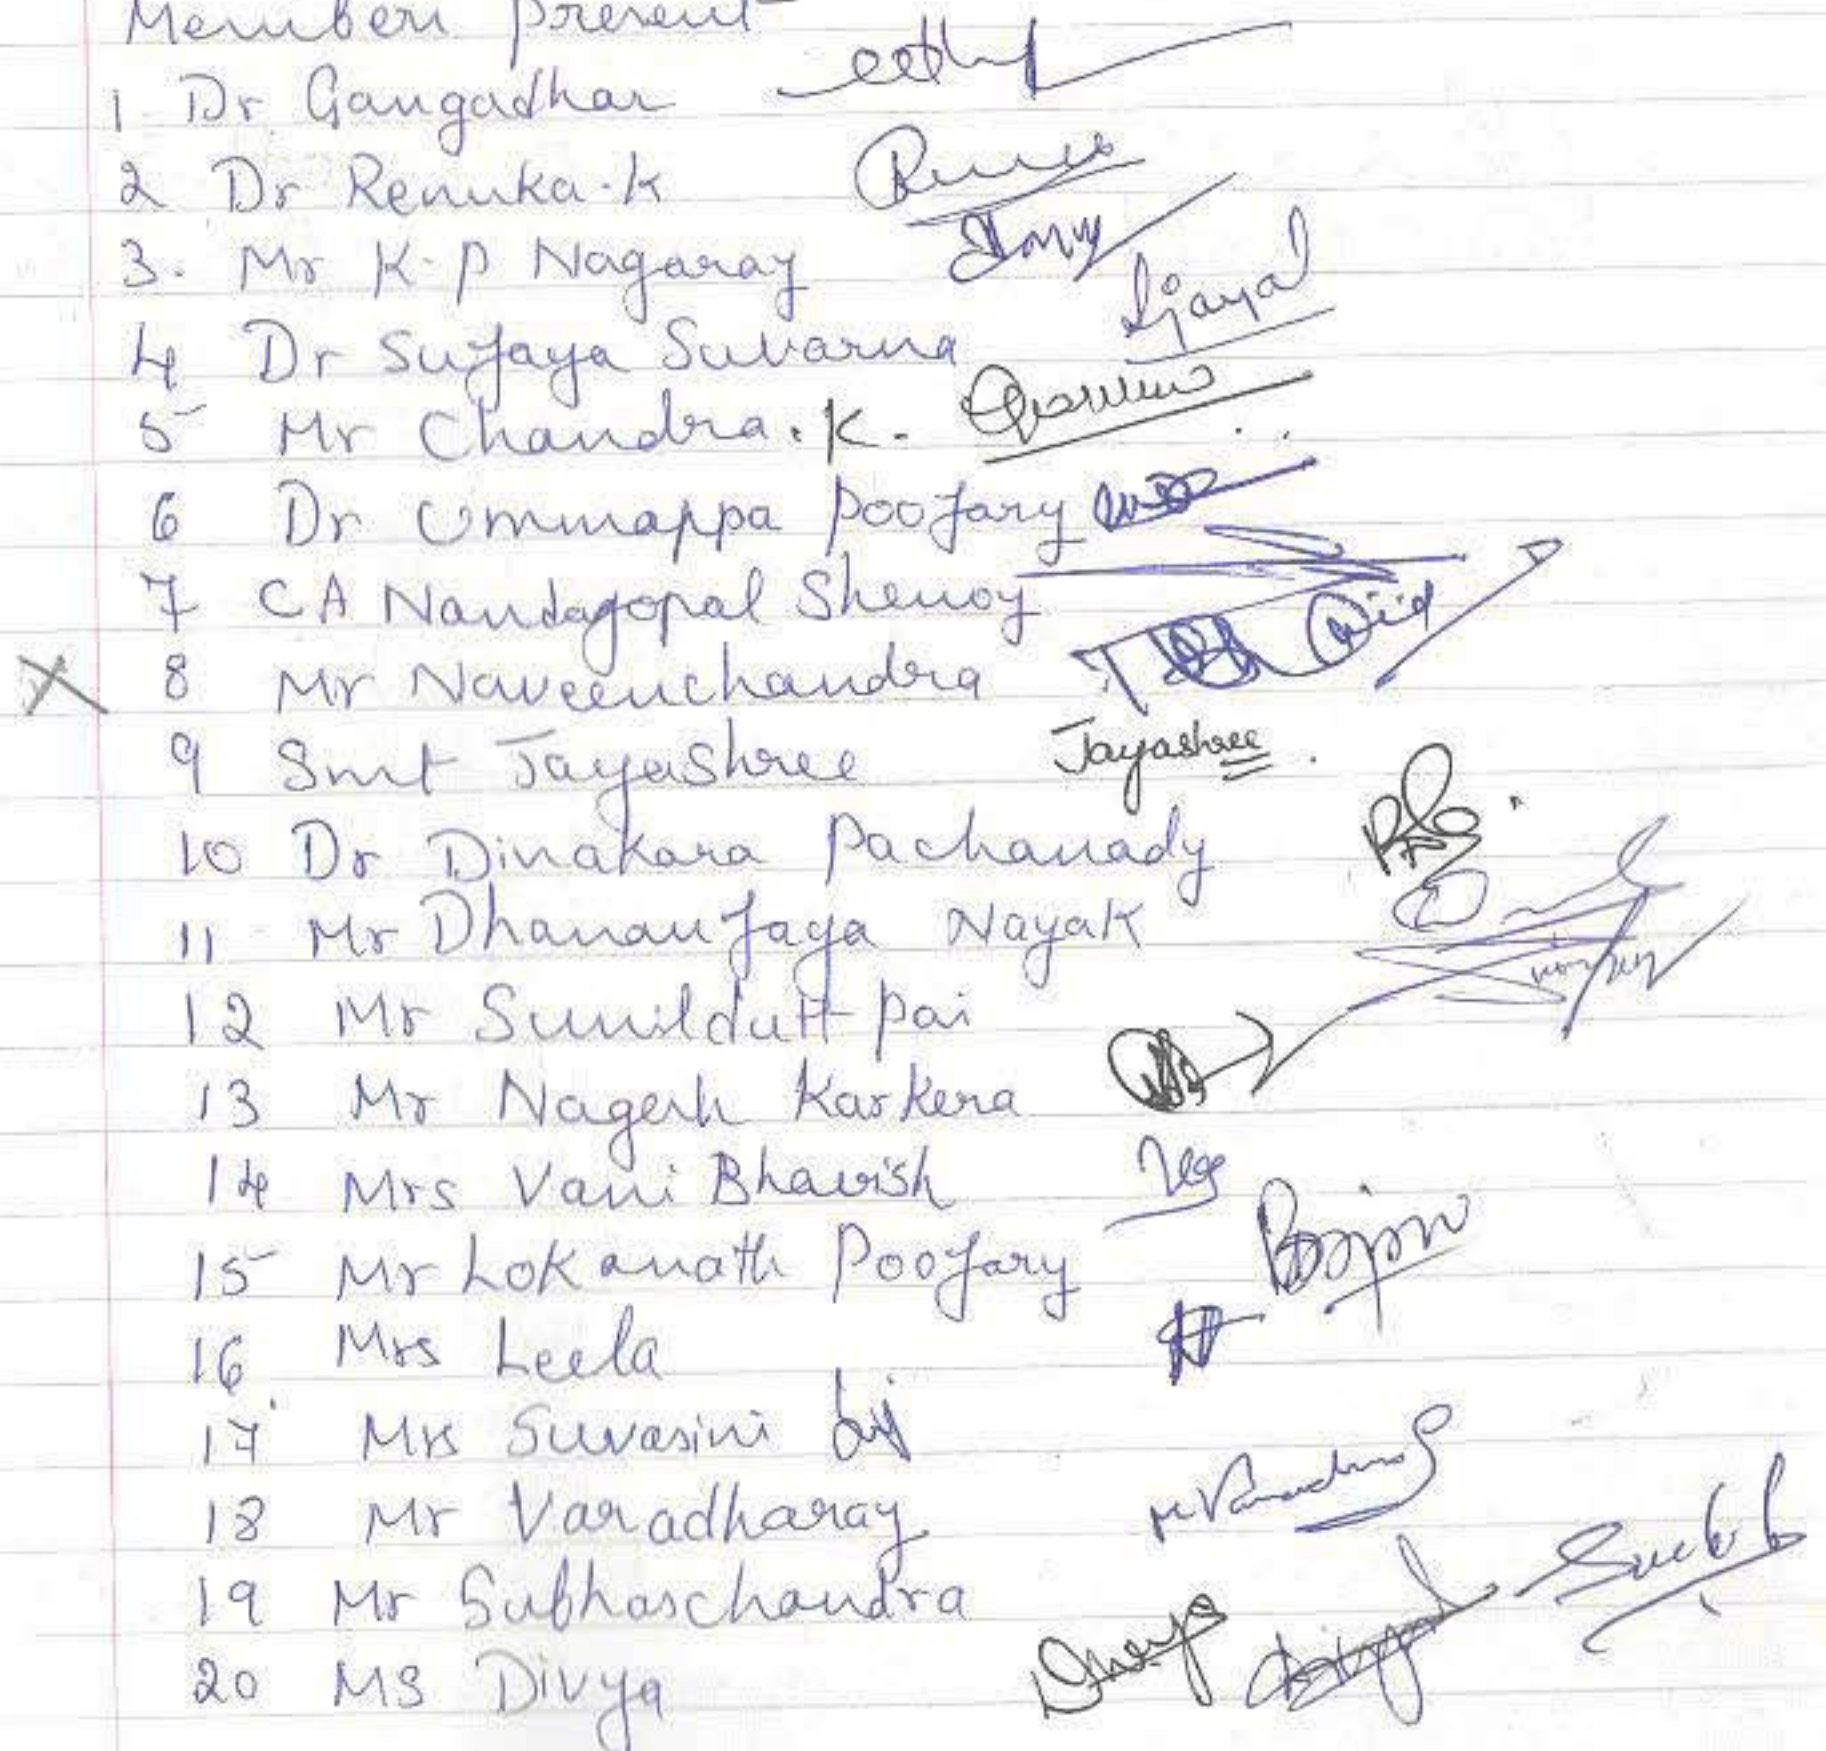 Members present
1 Dr Gangadhar
2 Dr Renuka.K
3. Mr K.P Nagaraj
4 Dr Sujaya Suvarna
5 Mr Chandra.K.
6 Dr Ummappa Poojary
7 CA Nandagopal Shenoy
X 8 Mr Naveenchandra
9 Smt Jayashree Jayashree.
10 Dr Dinakara Pachanady
11 Mr Dhananjaya Nayak
12 Mr Sunildutt Pai
13 Mr Nagesh Karkera
14 Mrs Vani Bhavish
15 Mr Lokanath Poojary
16 Mrs Leela
17 Mrs Suvasini
18 Mr Varadharaj
19 Mr Subhaschandra
20 MS Divya